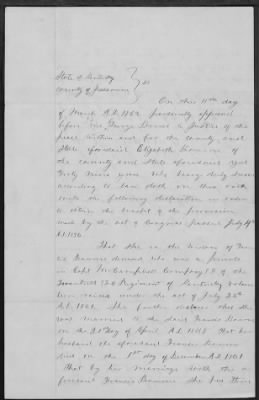 State of Kentucky
County of Jessamine } SS
On this 11th day
of March A.D. 1862 personally appeared
before me George Brown a Justice of the
peace within and for the county and
State aforesaid Elizabeth
of the county and State aforesaid aged
forty three years who being duly sworn
according to law doth on this oath
make the following declaration in order
to obtain the benefit of the provision
made by the act of Congress passed July 4th
A.D. 1836
That she is the widow of
deceased who was a private
in Capt McCampbell Company of the
Regiment of Kentucky Volun
teers under the act of July 22d
A.D. 1861. She further declares that she
was married to the said Francis
on the day of April A.D. That her
husband the aforesaid Francis
died on the 1st day of December A.D. 1861
That by her marriage with the a
foresaid Francis She has